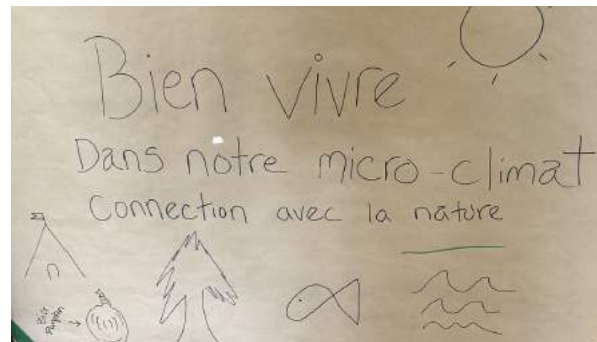 Bien vivre
Dans notre micro-climat
Connection avec la nature
Big
Pumpkin